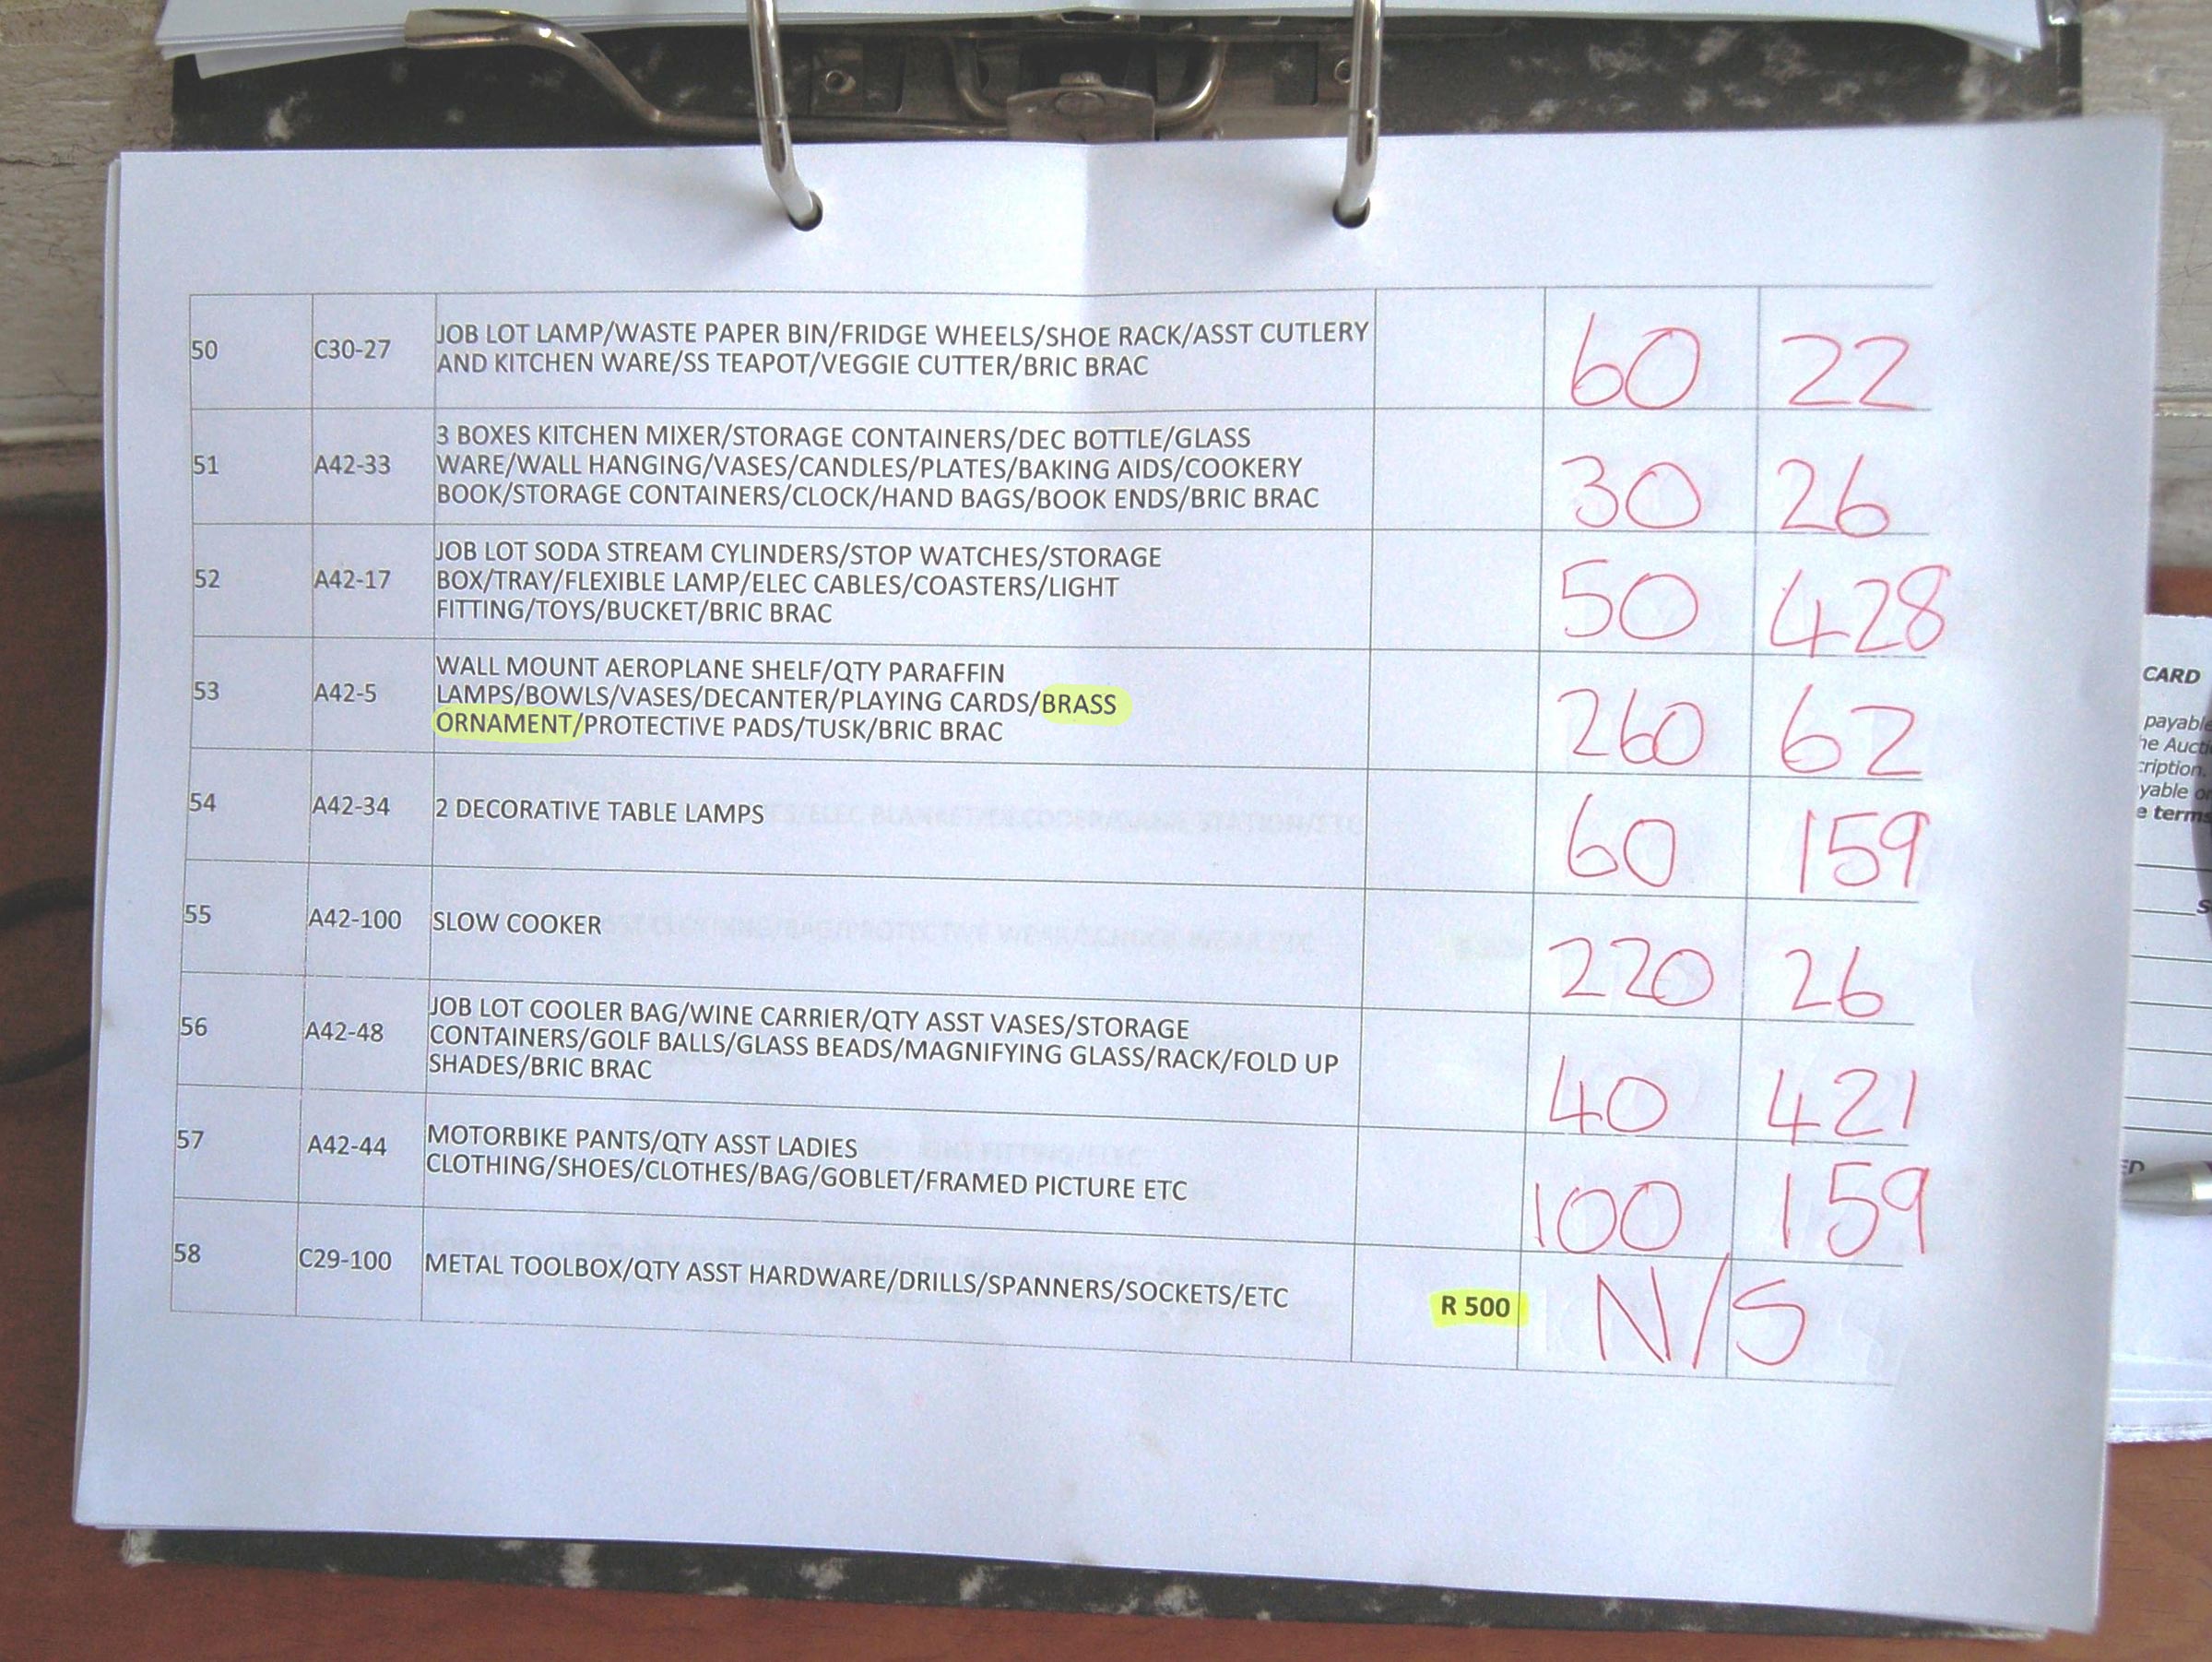 50 C30-27 JOB LOT LAMP/WASTE PAPER BIN/FRIDGE WHEELS/SHOE RACK/ASST CUTLERY
AND KITCHEN WARE/SS TEAPOT/VEGGIE CUTTER/BRIC BRAC 60 22
3 BOXES KITCHEN MIXER/STORAGE CONTAINERS/DEC BOTTLE/GLASS
51 A42-33 WARE/WALL HANGING/VASES/CANDLES/PLATES/BAKING AIDS/COOKERY 30 26
BOOK/STORAGE CONTAINERS/CLOCK/HAND BAGS/BOOK ENDS/BRIC BRAC
JOB LOT SODA STREAM CYLINDERS/STOP WATCHES/STORAGE
52 A42-17 BOX/TRAY/FLEXIBLE LAMP/ELEC CABLES/COASTERS/LIGHT 50 428
FITTING/TOYS/BUCKET/BRIC BRAC
WALL MOUNT AEROPLANE SHELF/QTY PARAFFIN
53 A42-5 LAMPS/BOWLS/VASES/DECANTER/PLAYING CARDS/BRASS 260 62
ORNAMENT/PROTECTIVE PADS/TUSK/BRIC BRAC
54 A42-34 2 DECORATIVE TABLE LAMPS 60 159
55 A42-100 SLOW COOKER 220 26
JOB LOT COOLER BAG/WINE CARRIER/QTY ASST VASES/STORAGE
56 A42-48 CONTAINERS/GOLF BALLS/GLASS BEADS/MAGNIFYING GLASS/RACK/FOLD UP 40 421
SHADES/BRIC BRAC
57 A42-44 MOTORBIKE PANTS/QTY ASST LADIES
CLOTHING/SHOES/CLOTHES/BAG/GOBLET/FRAMED PICTURE ETC 100 159
58 C29-100 METAL TOOLBOX/QTY ASST HARDWARE/DRILLS/SPANNERS/SOCKETS/ETC R 500 N/S
CARD
payable
terms